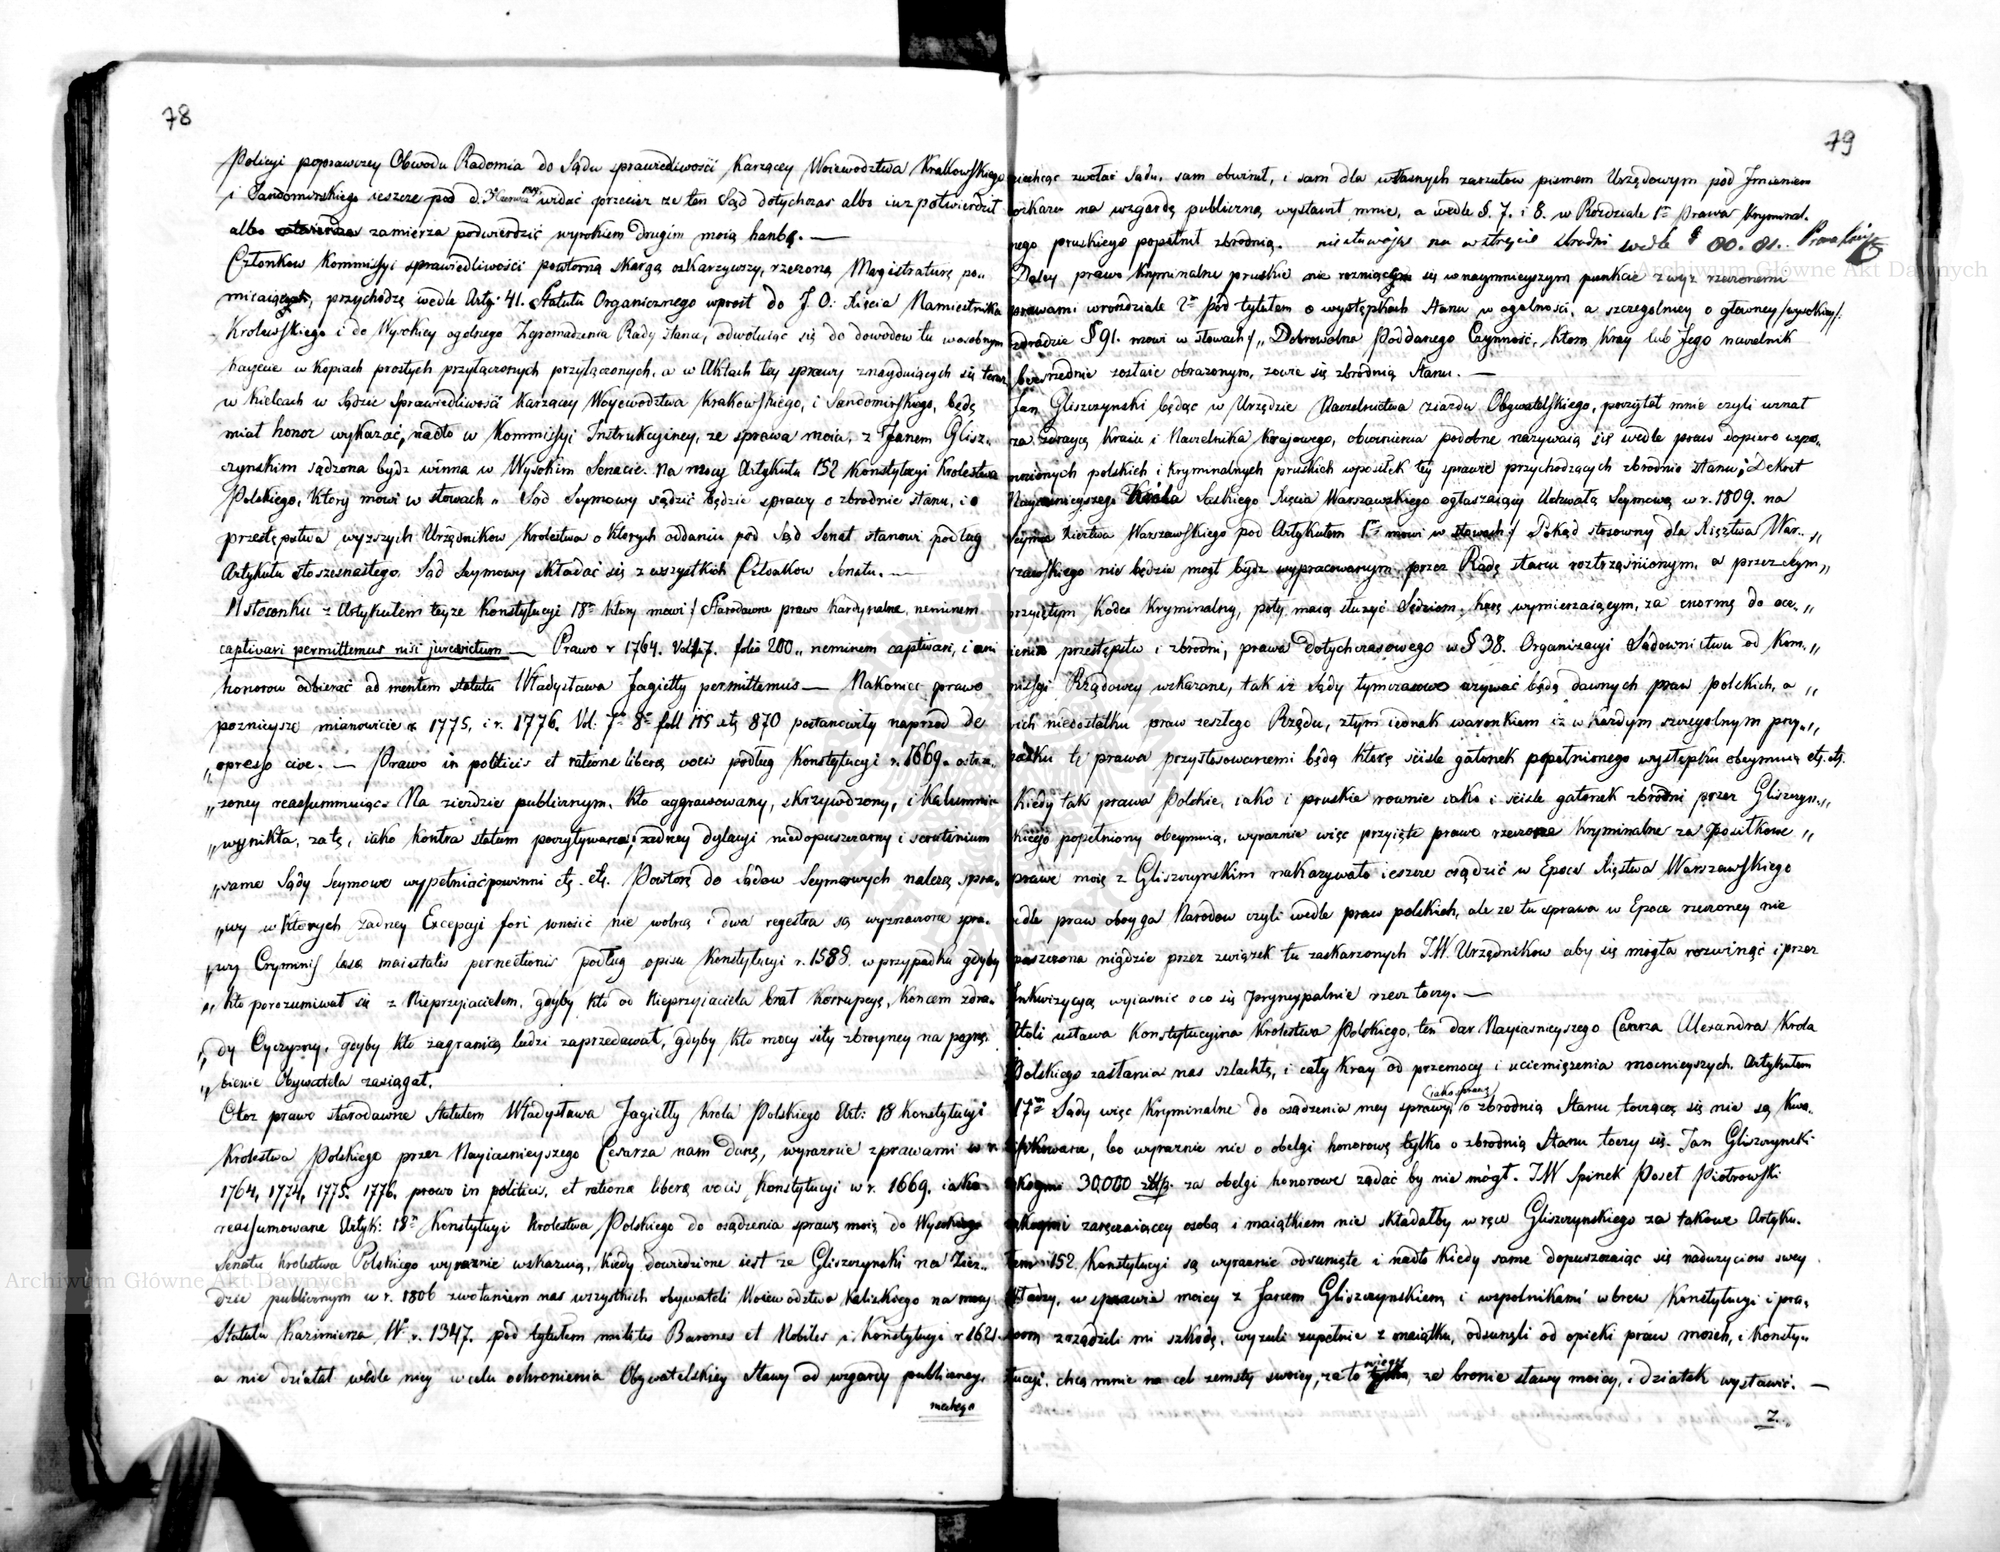 78
Policyi poprawczey Obwodu Radomia do Sądu sprawiedliwości Karzącey Woiewodztwa Krakowskiego
i Sandomirskiego ieszcze pod d. 3 Czerwca 1819 widać przecież ze ten Sąd dotychczas albo iuz potwierdził
albo zamierza podwierdzić wyrokiem drugim moią hanbę. —
Członkow Kommissyi sprawiedliwości powtorną skargą oskarzywszy, rzeczoną Magistraturę po„
miiaiąc, przychodzę wedle Artyk: 41. Statutu Organicznego wprost do J. O: Xięcia Namiestnika
Krolewskiego i do Wysokiey ogolnego Zgromadzenia Rady stanu, odwołuiąc się do dowodow tu w osobnym
Kaiecie w Kopiach prostych przyłączonych, a w Aktach tey sprawy znayduiących się teraz
w Kielcach w Sądzie Sprawiedliwości Karzącey Woyewodztwa Krakowskiego, i Sandomirskiego, będę
miał honor wykazać, nadto w Kommissyi Instrukcyiney, ze sprawa moia, z Janem Glisz„
czynskim sądzona bydz winna w Wysokim Senacie. Na mocy Artykułu 152 Konstytucyi Krolestwa
Polskiego, Ktory mowi w słowach „ Sąd Seymowy sądzić będzie sprawy o zbrodnie stanu, i o
przestępstwa wyzszych Urzędnikow Krolestwa o Ktorych oddaniu pod Sąd Senat stanowi podług
Artykułu stoszesnastego. Sąd Seymowy składać się z wszystkich Członkow Senatu. —
W stosonku z Artykułem teyze Konstytucyi 18m ktory mowi / Starodawne prawo kardynalne, neminem
captivari permittemus nisi jurevictum — Prawo r 1764. Vol: 7. folio 200 „ neminem captivari, i ani
honorow odbierać ad mentem statutu Władysława Jagiełły permittemus — Nakoniec prawo
poznieysze mianowicie r. 1775, i r. 1776. Vol: 7m 8m foll 175 etc 870 postanowiły naprzod de
„ opresso cive. — Prawo in politicis et ratione liberæ vocis podług Konstytucyi r. 1669. ostrze„
„ zoney reassummuiąc. Na zieździe publicznym, Kto aggrawowany, skrzywdzony, i Kalumnia
„ wynikła, za tę, iako kontra statum poczytywaną, zadney dylacyi niedopuszczamy i scrutinium
„ same Sądy Seymowe wypełniać powinni etc. etc. Powtore do Sądow Seymowych nalezą spra„
„ wy w Ktorych zadney Excepcyi fori wnosić nie wolną i dwa regestra są wyznaczone spra„
„ wy Cryminis læsæ maiestatis perduellionis podług opisu Konstytucyi r. 1588. w przypadku gdyby
„ kto porozumiwał się z Nieprzyiacielem, gdyby kto od Nieprzyiaciela brał Korrupcyą, Koncem zdra„
„ dy Oyczyzny, gdyby Kto zagranicą ludzi zaprzedawał, gdyby Kto mocy siły zbroyney na pognę„
„ bienie Obywatela zasiągał.
Otoz prawo starodawne Statutem Władysława Jagiełły Krola Polskiego Art: 18 Konstytucyi
Krolestwa Polskiego przez Nayiaśnieyszego Cesarza nam daną, wyraznie z prawami w r.
1764, 1774, 1775. 1776. prawo in politicis, et ratione liberæ vocis Konstytucyi w r. 1669. iako
reassumowane Artyk: 18m Konstytucyi Krolestwa Polskiego do osądzenia sprawę moią do Wysokiego
Senatu Krolestwa Polskiego wyraznie wskazuią, Kiedy dowiedzione iest ze Gliszczynski na Ziez„
dzie publicznym w r. 1806 zwołaniem nas wszystkich obywateli Woiewodztwa Kaliskiego na mocy
Statutu Kazimierza W. r. 1347. pod tytułem milites Barones et Nobiles i Konstytucyi r 1621.
a nie działał wedle niey w celu ochronienia Obywatelskiey Sławy od wzgardy publiczney,
79
niechcąc zwołać Sądu, sam obwinił, i sam dla własnych zarzutow pismem Urzędowym pod Imieniem
rozkazu na wzgardę publiczną wystawił mnie, a wedle §. 7. i 8. w Rozdziale 1m Prawa Kryminal„
nego pruskiego popełnił zbrodnią. wedle § 80. 81.
Daley prawo Kryminalne pruskie nie rozniące się w naymnieyszym punkcie z wyz rzeczonemi
prawami w rozdziale 2m pod tytułem o występkach Stanu w ogolności, a szczegolniey o głowney /wysokiey/:
zdradzie § 91. mowi w słowach / „ Dobrowolna Poddanego Czynność, Ktorą Kray lub Jego naczelnik
bezsrzednie zostaie obrazonym, zowie się zbrodnią Stanu. —
Jan Gliszczynski będąc w Urzędzie Naczelnictwa ziazdu Obywatelskiego, poczytał mnie czyli uznał
za zdraycę Kraiu i Naczelnika Kraiowego, obwinienia podobne nazywaią się wedle praw dopiero wspo„
mnionych polskich i Kryminalnych pruskich w posiłek tey sprawie przychodzących zbrodnio stanu; Dekret
Nayiaśnieyszego Króla Saskiego Xięcia Warszawskiego ogłaszaiący Uchwałę Seymową w r. 1809. na
Seymie Xiestwa Warszawskiego pod Artykułem 1m mowi w słowach / Dokąd stosowny dla Xięztwa War„
szawskiego nie będzie mogł bydz wypracowanym przez Radę stanu roztrząśnionym, a przez Seym „
przyiętym Kodex Kryminalny, poty maią słuzyć Sędziom, karę wymierzaiącym, za normę do oce„
nienia przestępstw i zbrodni, prawa dotychczasowego w § 38. Organizacyi Sądownictwa od Kom„
missyi Rządowey wskazane, tak iz Sądy tymczasowo uzywać będą dawnych praw polskich, a „
wich niedostatku praw zeszłego Rządu, z tym iednak warunkiem iz w kazdym szczegolnym przy„
padku te prawa przystosowanemi będą ktore ściśle gatunek popełnionego występku obeymuią etc. etc.
Kiedy tak prawa Polskie, iako i pruskie rownie iako i ściśle gatunek zbrodni przez Gliszczyn„
skiego popełniony obeymuią, wyraznie więc przyięte prawo rzeczone Kryminalne za posiłkowe „
prawe moię z Gliszczynskim nakazywało ieszcze osądzić w Epoce Xięstwa Warszawskiego
wedle praw oboyga Narodow czyli wedle praw polskich, ale ze ta sprawa w Epoce rzeczoney nie
puszczona nigdzie przez związek tu zaskarzonych JW. Urzędnikow aby się mogła rozwinąć i przez
Inkwizycyą wyiasnić oco się pryncypalnie rzecz toczy. —
Atoli ustawa Konstytucyina Krolestwa Polskiego, ten dar Nayiasnieyszego Cesarza Alexandra Krola
Polskiego zasłania nas szlachtę, i cały Kray od przemocy i uciemięzenia mocnieyszych. Artykułem
17m Sądy więc Kryminalne do osądzenia mey sprawy, iako o zbrodnią Stanu toczącą się nie są kwa„
lifikowane, bo wyraznie nie o obelgi honorowe tylko o zbrodnią Stanu toczy się. Jan Gliszczynski
30.000 złp. za obelgi honorowe ządać by nie mógł. JW Spinek Poseł Piotrowski
zaręczaiącey osobą i maiątkiem nie składałby w ręce Gliszczynskiego za takowe Artyku„
łem 152 Konstytucyi są wyraznie odsunięte i nadto Kiedy same dopuszczaiąc się naduzyciow swey
Władzy, w sprawie moiey z Janem Gliszczynskiem i wspolnikami wbrew Konstytucyi i pra„
wom zrządzili mi szkodę, wyzuli zupełnie z maiątku, odsunęli od opieki praw moich, i Konsty„
tucyi, chcą mnie na cel zemsty swoiey, za to więcey, ze bronie sławy moiey, i dziatek wystawić. —